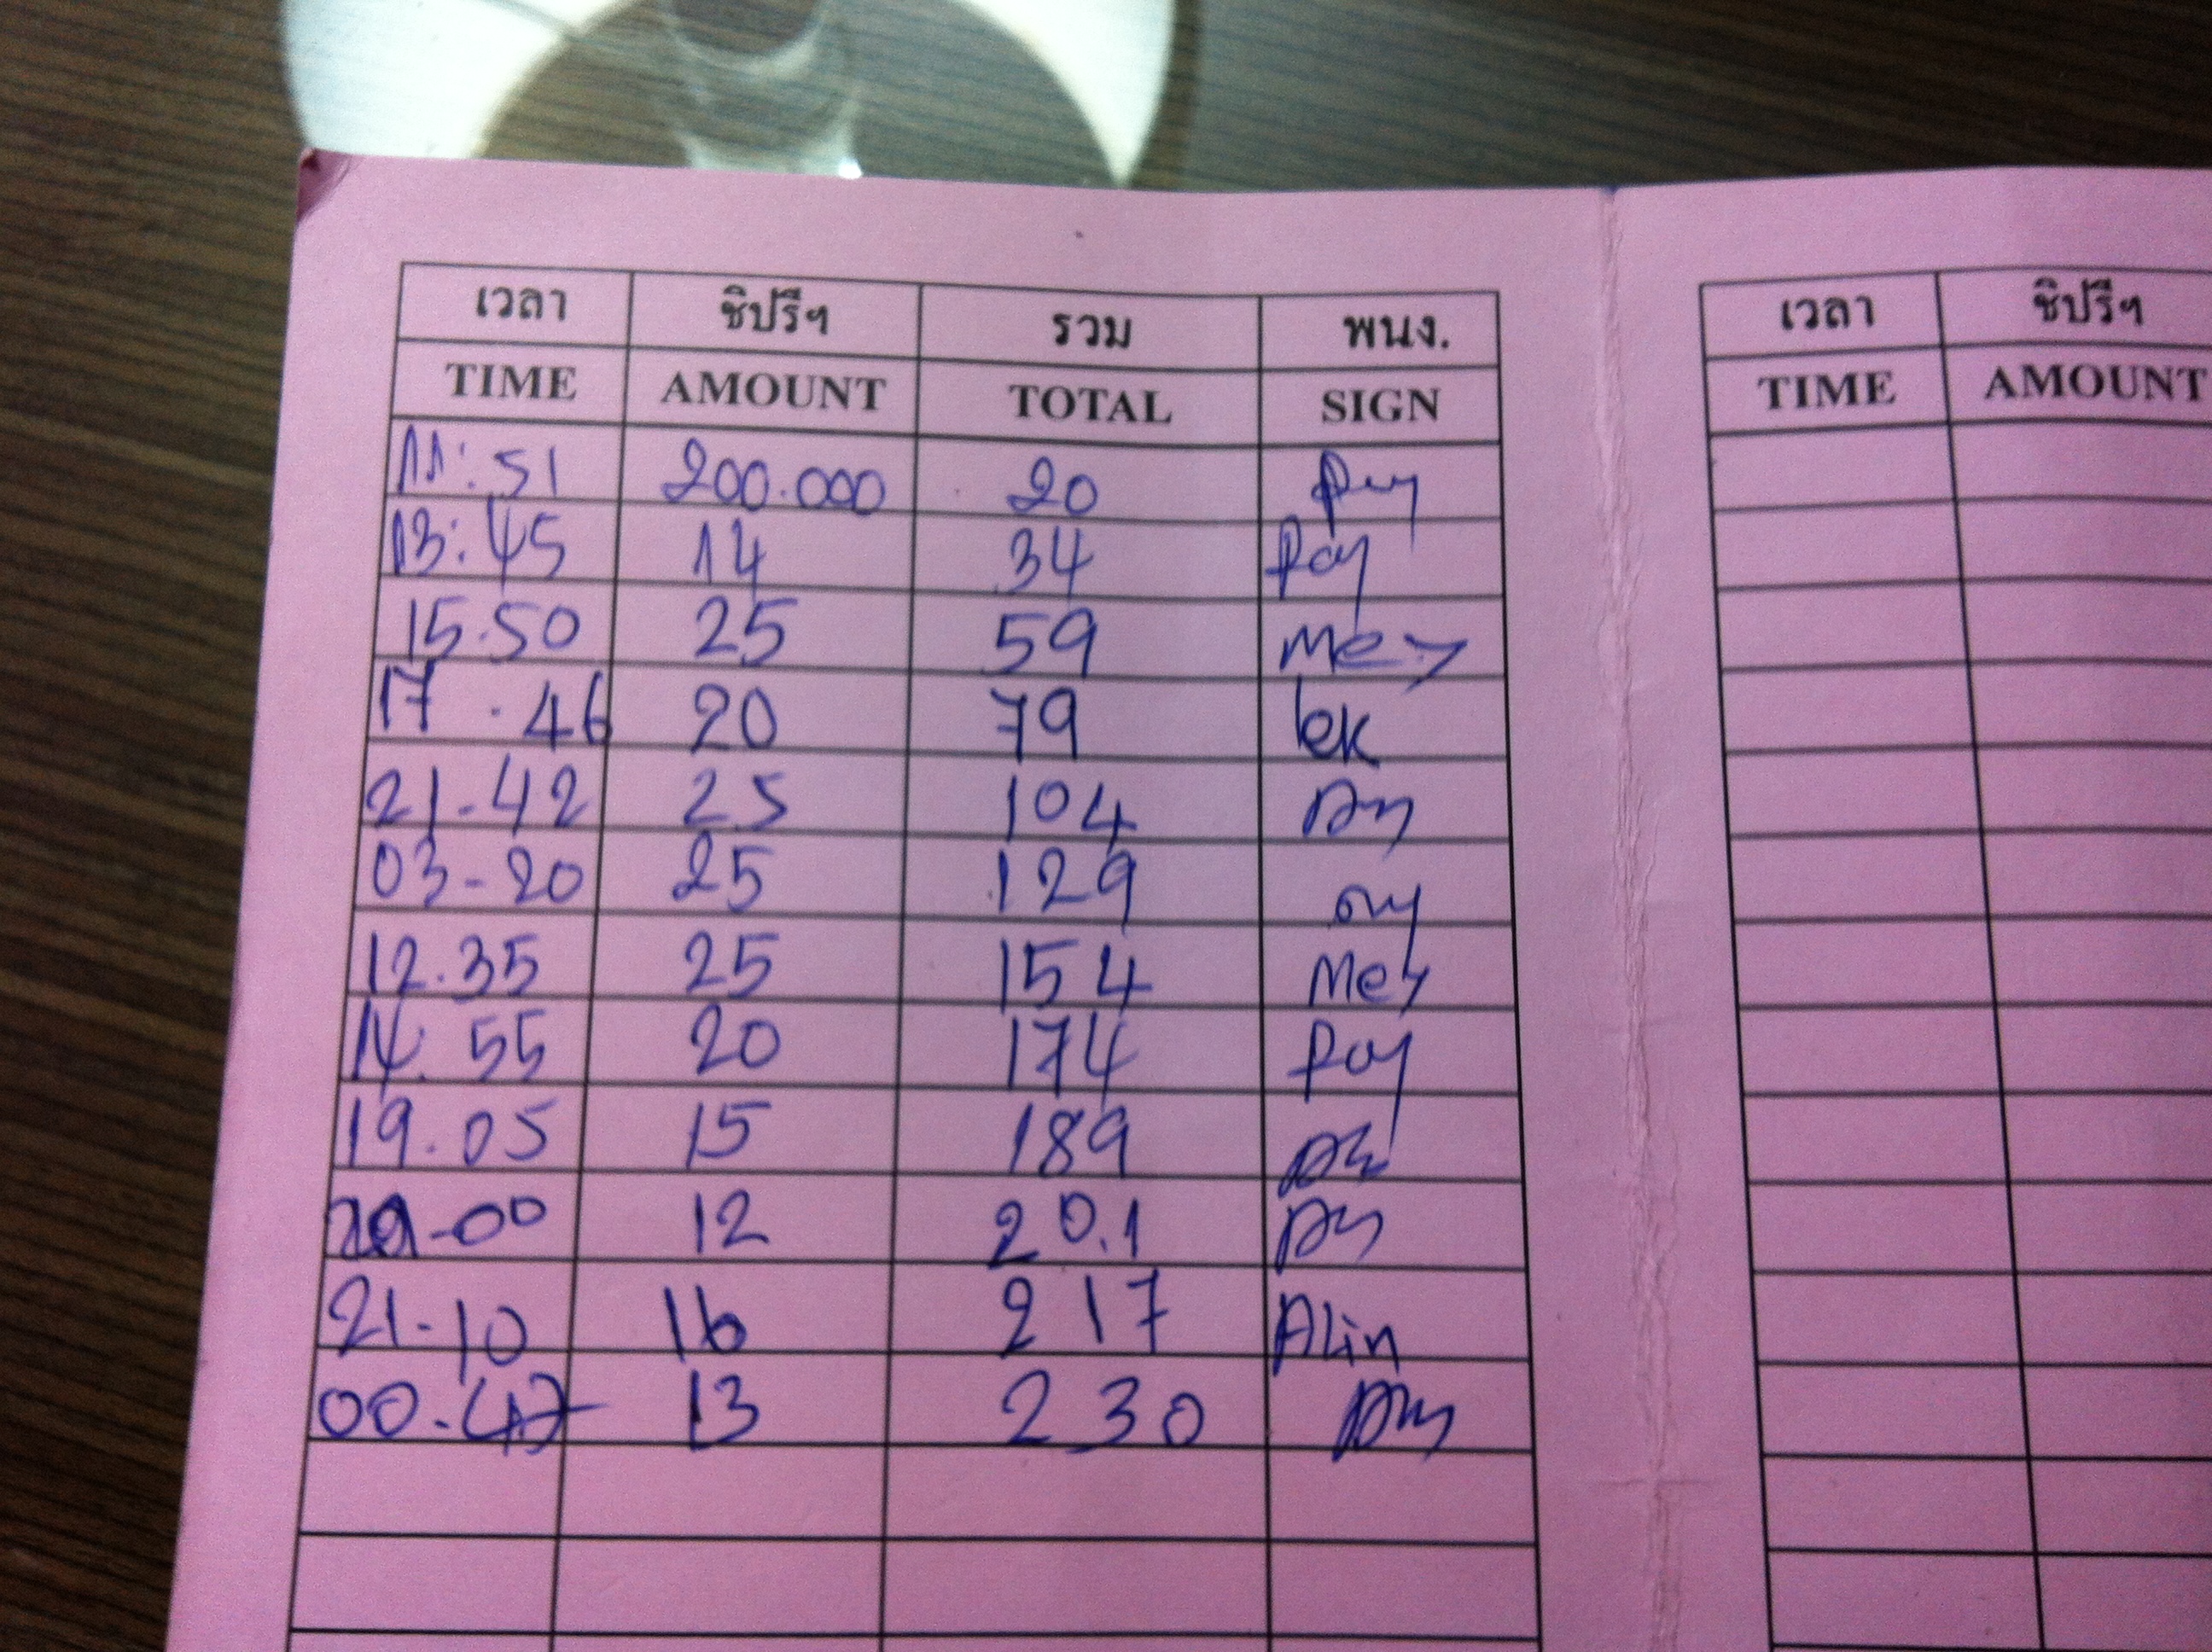 เวลา ชิปรีฯ รวม พนง. เวลา ชิปรีฯ
TIME AMOUNT TOTAL SIGN TIME AMOUNT
11:51 200.000 20
13:45 14 34 Pay
15.50 25 59 Mey
17.46 20 79 lek
21-42 25 104
03-20 25 129
12.35 25 154 Mey
14.55 20 174 Pay
19.05 15 189
-00 12 20.1
21-10 16 217 Alin
00.47 13 230